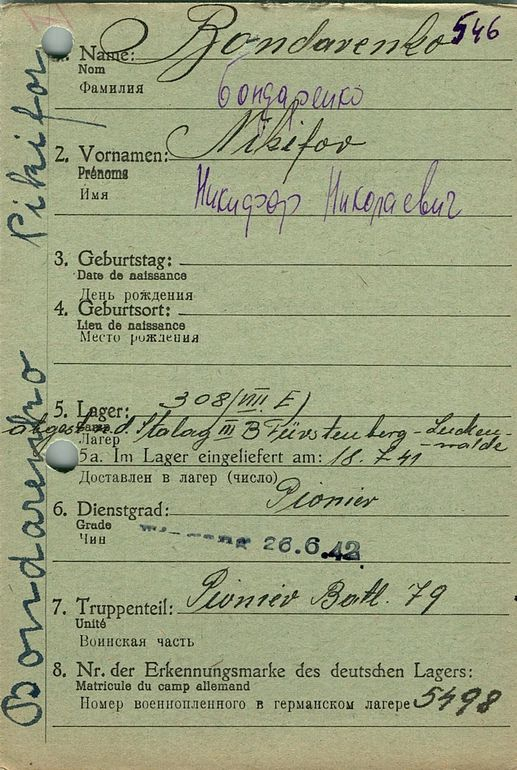 Bondarenko 546
Name:
Nom
Фамилия
Бондаренко
Nikifor
2. Vornamen:
Prénoms
Имя
Никифор Николаевич
3. Geburtstag:
Date de naissance
День рождения
4. Geburtsort:
Lieu de naissance
Место рождения
308/(VIII. E)
5. Lager:
d. Stalag III B Fürstenberg - Lucken-
walde
Лагер
5a. Im Lager eingeliefert am: 18.7.41
Доставлен в лагер (число)
Pionier
6. Dienstgrad:
Grade
Чин
26.6.42
Pionier Batl. 79
7. Truppenteil:
Unité
Воинская часть
8. Nr. der Erkennungsmarke des deutschen Lagers:
Matricule du camp allemand
Номер военнопленного в германском лагере 5498
Bondarenko Nikifor